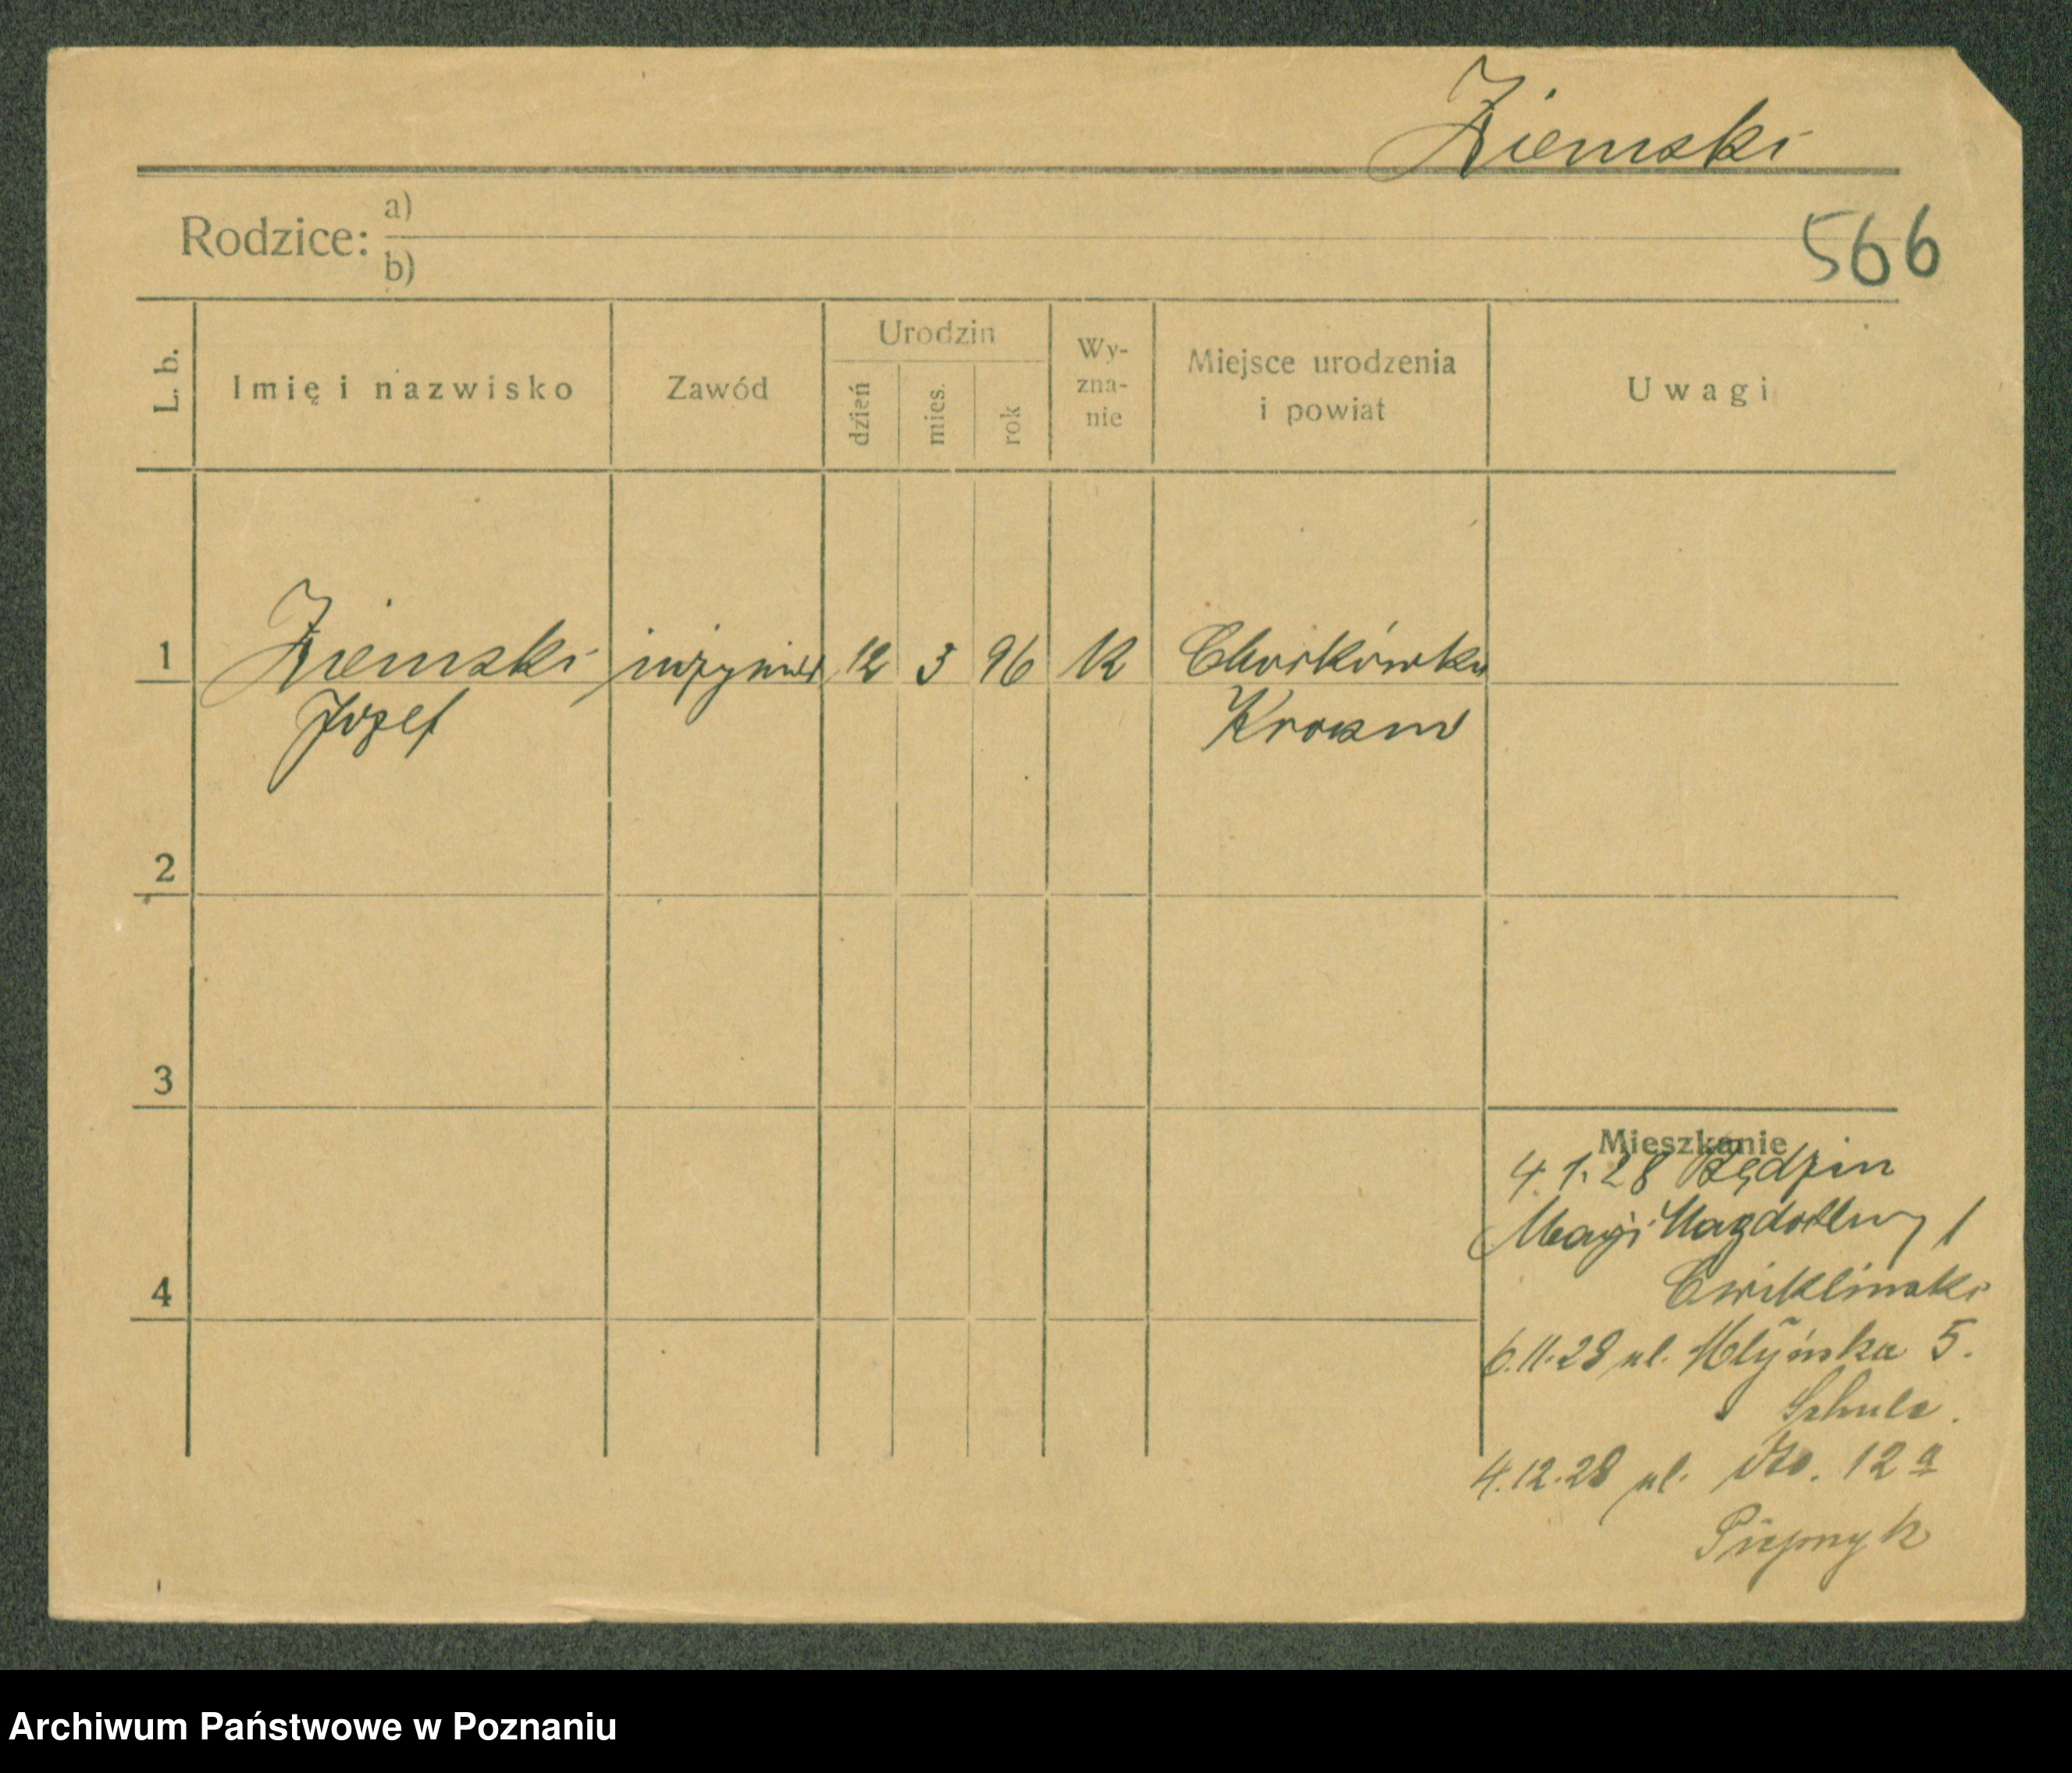 Ziemski
Rodzice: a)
b)
566
L. b.
Imię i nazwisko
Zawód
Urodzin
dzień
mies.
rok
Wy-
zna-
nie
Miejsce urodzenia
i powiat
Uwagi
1
Ziemski inżynier 12 3 96 K Chorkówka
Józef Krosno
2
3
4
Mieszkanie
4.1.28 Będzin
Magdaleny 1
Cwiklinski
6.11.28 ul. Młyńska 5.
4.12.28 ul. 12 a
Archiwum Państwowe w Poznaniu